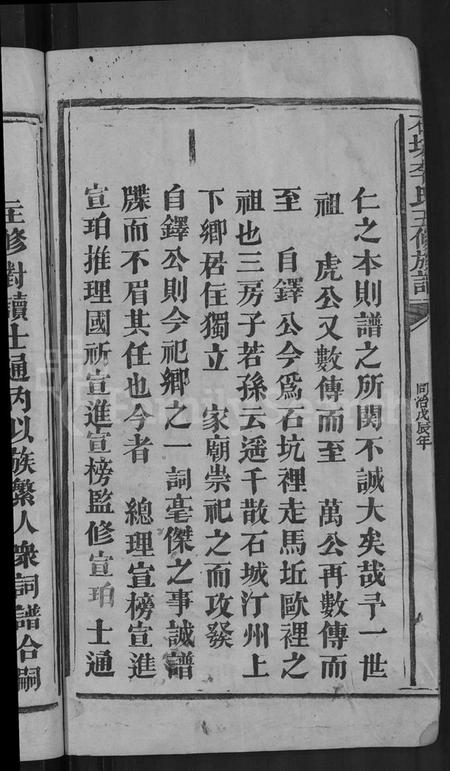 石坑李氏五修族譜
同治戊辰年
仁之本則譜之所関不誠大矣哉予一世
祖 虎公又數傳而至 萬公再數傳而
至 自鐸公今為石坑裡走馬坵歐裡之
祖也三房子若孫云遥千散石城汀州上
下鄉居住獨立 家廟崇祀之而攻發
自鐸公則今祀鄉之一詞毫傑之事誠譜
牒而不眉其任也今者 總理宣榜宣進
宣珀推理國祈宣進宣榜監修宣珀士通
修對讀士通丙以族繁人衆詞譜合嗣